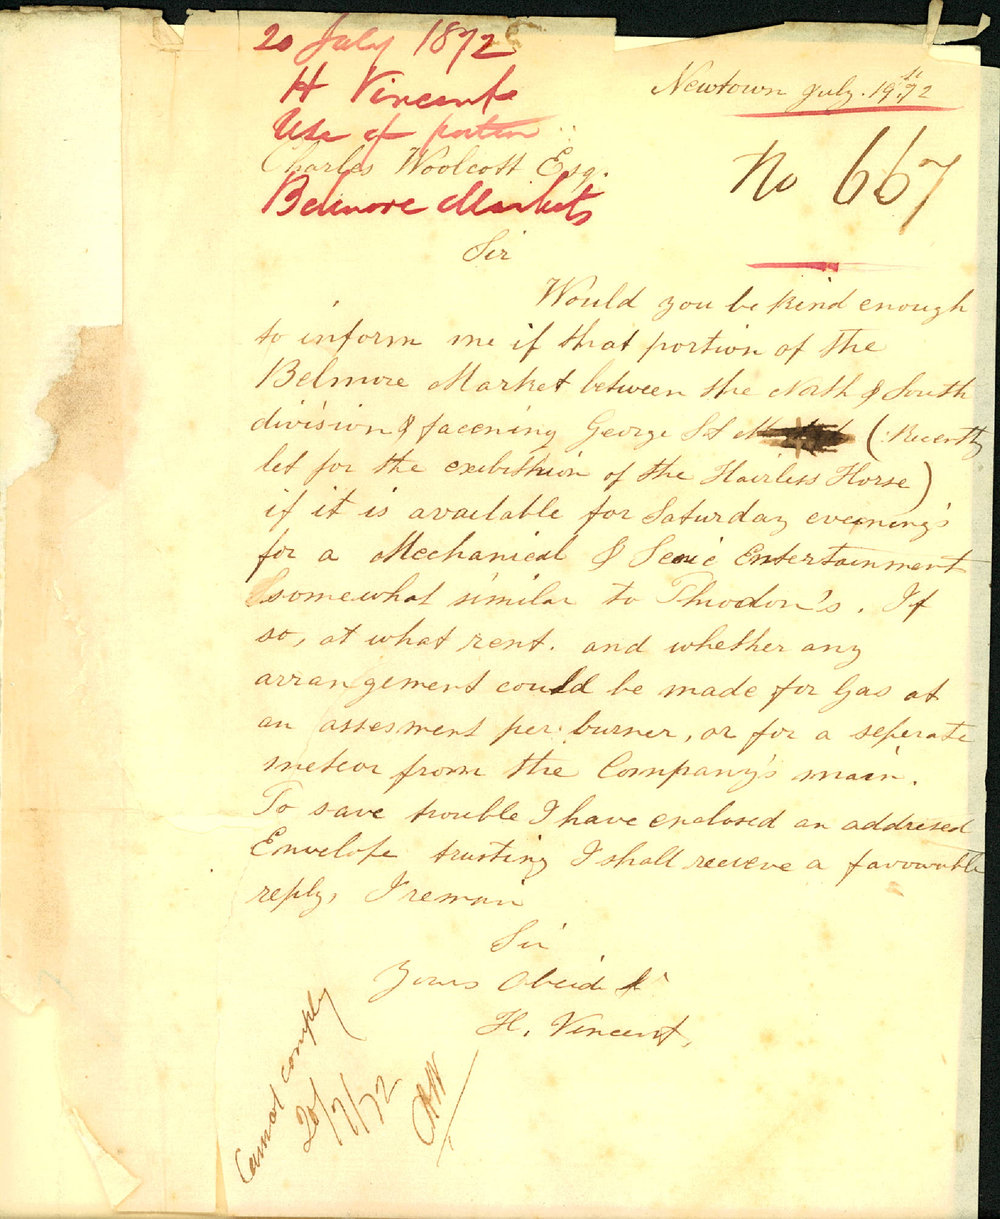 20 July 1872
H Vincent
Use of portion
Charles Woolcott Esq.
Belmore Markets
Newtown July. 19th/72
No 667
Sir
Would you be kind enough
to inform me if that portion of the
Belmore Market between the North & South
division & facening George St (Recently
let for the exibition of the Hairless Horse)
if it is available for Saturday evening's
for a Mechanical & Scenic Entertainment
somewhat similar to Thiodon's. If
so, at what rent. and whether any
arrangement could be made for Gas at
an assesment per burner, or for a seperate
meteor from the Company's main.
To save trouble I have enclosed an addresed
Envelope trusting I shall recieve a favourable
reply, I remain
Sir
Yours Obeidt
H. Vincent,
Cannot comply
20/7/72